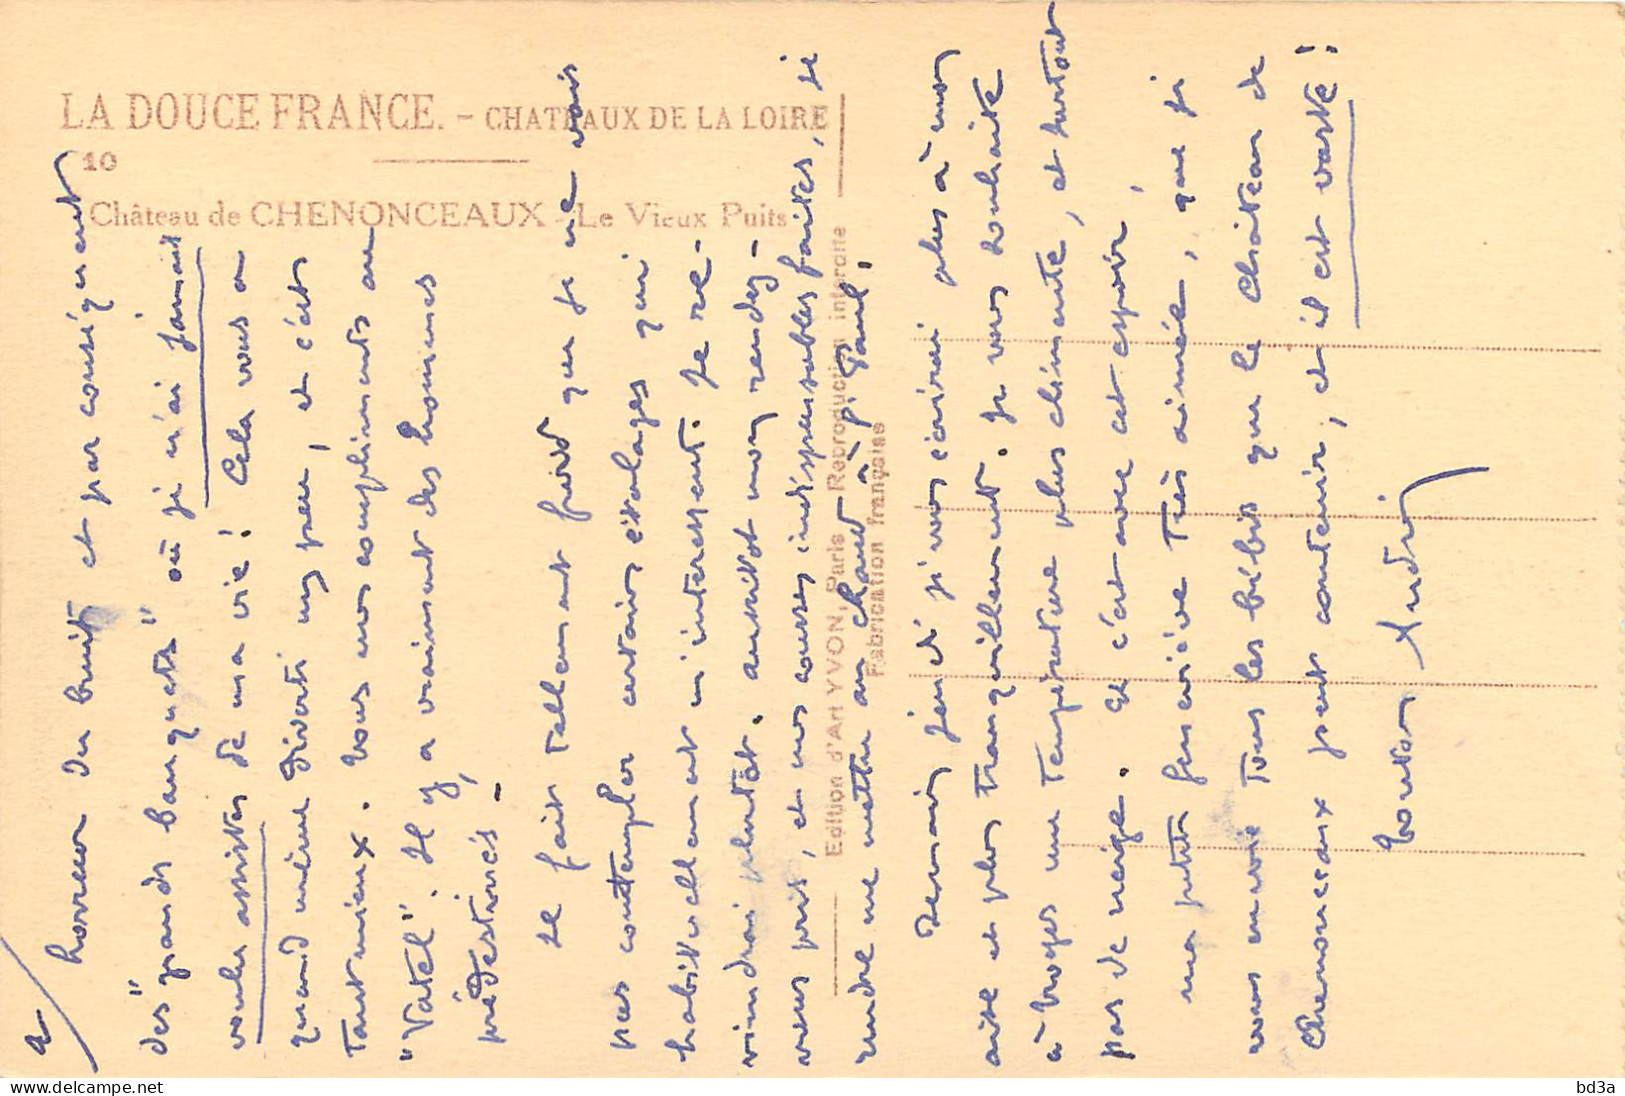 LA DOUCE FRANCE. - CHATEAUX DE LA LOIRE
10
Château de CHENONCEAUX - Le Vieux Puits
Edition d'Art YVON, Paris Reproduction interdite
Fabrication française
2/ horreur du bruit et par conséquent
des "grands banquets" où je n'ai jamais
voulu assister de ma vie! Cela vous a
quand même diverti un peu, et c'est
tant mieux. Tous mes compliments au
"Vatel". Il y a vraiment des hommes
prédestinés -
Il fait tellement froid que je ne vais
pas contempler certains étalages qui
habituellement m'interessent. Je re-
viendrai plutôt aussitôt mon rendez-
vous pris, et mes courses indispensables faites, je
me mettre au chaud à p. Paul.
Demain jeudi j'vous écrirai plus à mon
aise et plus tranquillement. Je vous souhaite
à Troyes une température plus clémente, et surtout
pas de neige. Et c'est avec cet espoir,
ma petite Geneviève Très aimée, que je
vous envoie Tous les bébis que le Château de
Chenonceaux peut contenir, et il est vaste!
André